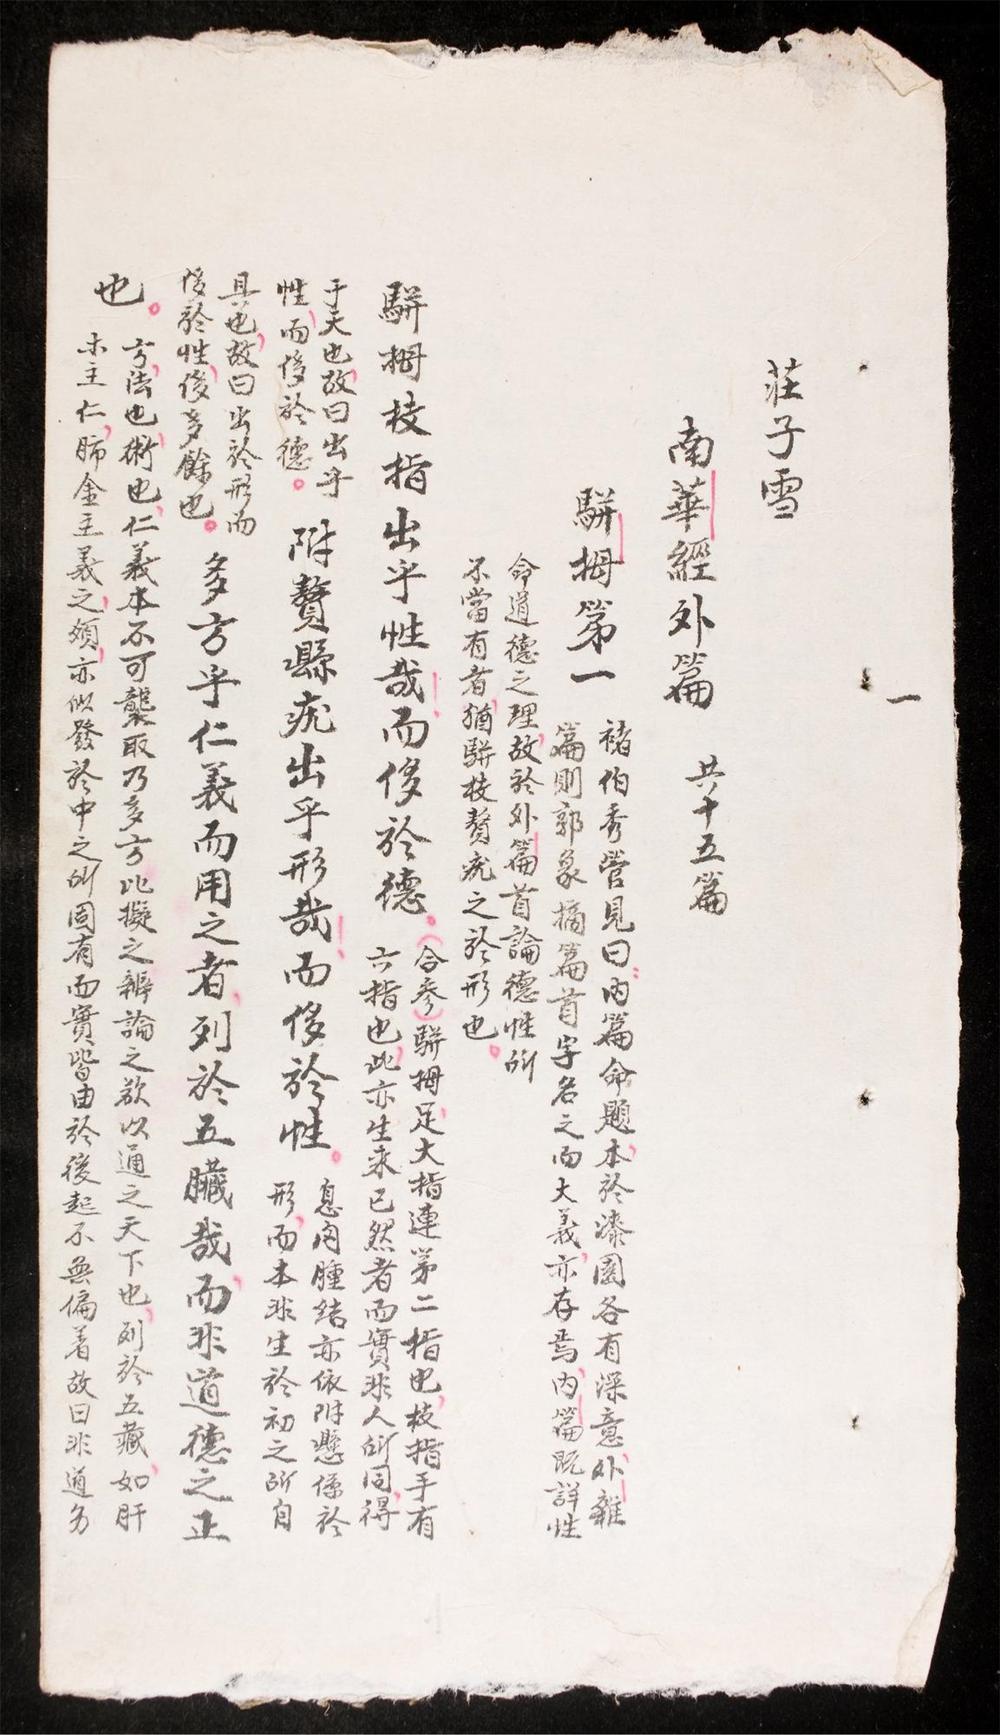 一
莊子雪
南華經外篇 共十五篇
駢拇第一
褚伯秀管見曰內篇命題本於漆園各有深意外雜
篇則郭象摘篇首字名之而大義亦存焉內篇既詳性
命道德之理故於外篇首論德性所
不當有者猶駢枝贅疣之於形也。
駢拇枝指出乎性哉而侈於德。
(合參)駢拇足大指連第二指也枝指手有
六指也此亦生来已然者而實非人所同得
于天也故曰出乎
性而侈於德。
附贅縣疣出乎形哉而侈於性。
息肉腫結亦依附懸係於
形而本非生於初之所自
具也故曰出於形而
侈於性侈多餘也。
多方乎仁義而用之者列於五臟哉而非道德之正
也。
方法也術也仁義本不可襲取乃多方比擬之辨論之欲以通之天下也列於五藏如肝
木主仁肺金主義之類亦似發於中之所固有而實皆由於後起不無偏着故曰非道